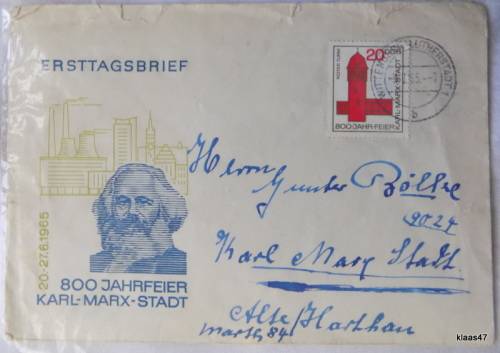 ERSTTAGSBRIEF
20 DDR
ROTER TURM
KARL-MARX-STADT
800 JAHR-FEIER
LUTHERSTADT
b
20-27.6.1965
800 JAHRFEIER
KARL-MARX-STADT
Herrn
Gunter Bölke
9024
Karl Marx Stadt
Alte/Harthau
84
klaas47